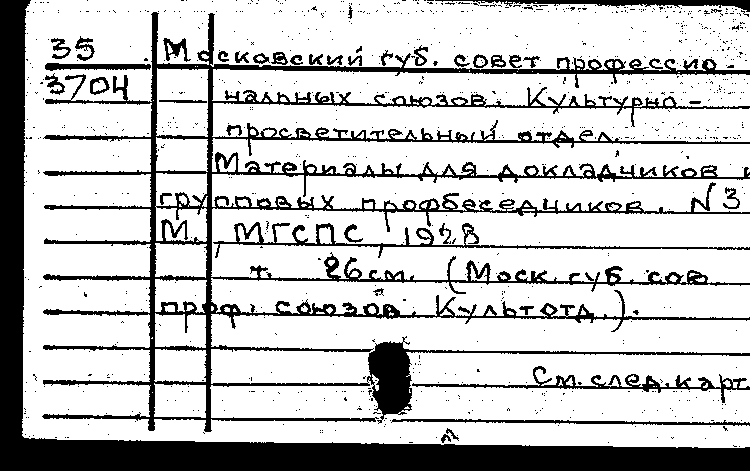 35 Московский губ. совет профессио-
3704 нальных союзов. Культурно-
просветительный отдел.
Материалы для докладчиков и
групповых профбеседчиков. N3
М., МГСПС, 1928
т. 26 см. (Моск. губ. сов.
проф. союзов. Культотд.).
См. след. карт.